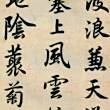 浪兼天湧
塞上風雲接
地陰叢菊